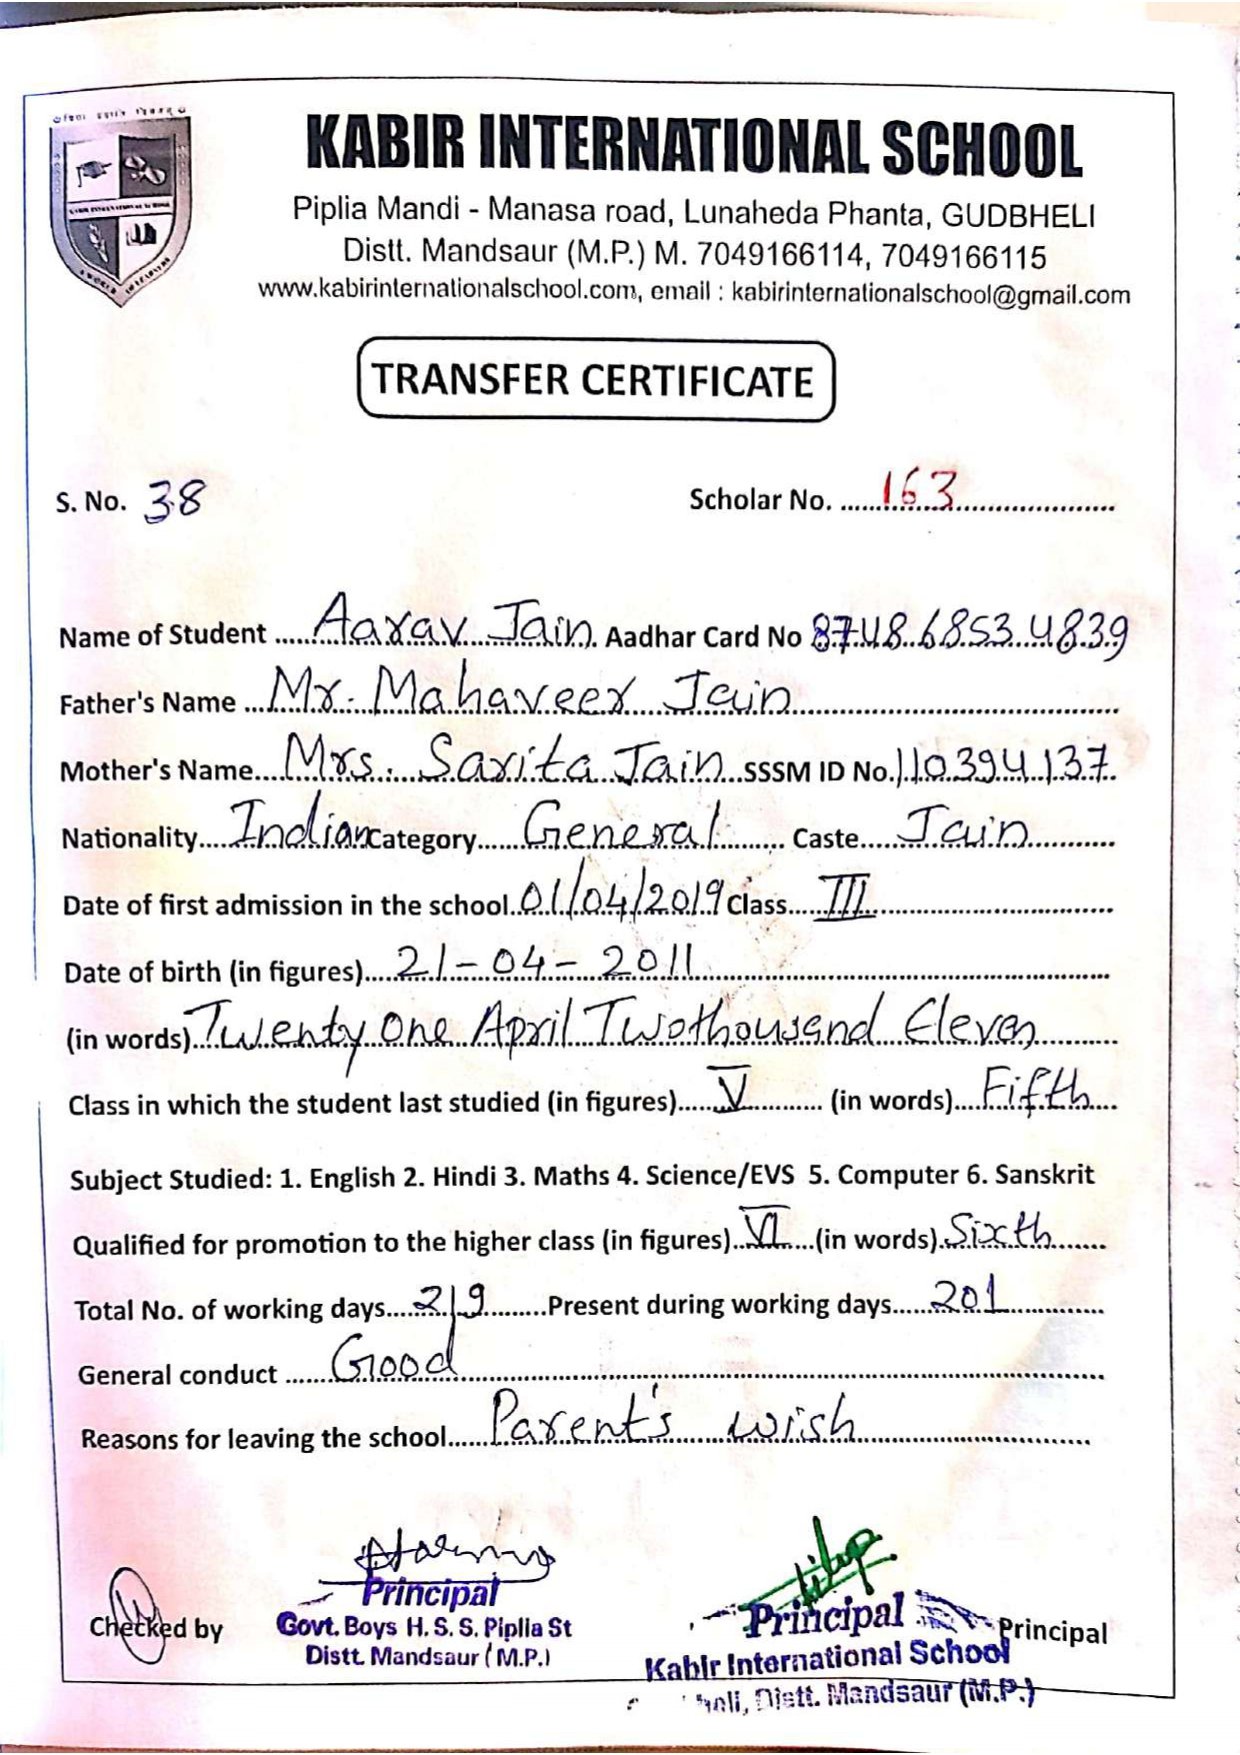 KABIR INTERNATIONAL SCHOOL
Piplia Mandi - Manasa road, Lunaheda Phanta, GUDBHELI
Distt. Mandsaur (M.P.) M. 7049166114, 7049166115
www.kabirinternationalschool.com, email : kabirinternationalschool@gmail.com
KABIR INTERNATIONAL SCHOOL
TRANSFER CERTIFICATE
S. No. 38 Scholar No. 163
Name of Student Aarav Jain Aadhar Card No 8748 6853 4839
Father's Name Mr. Mahaveer Jain
Mother's Name Mrs. Sarita Jain SSSM ID No. 110394137
Nationality Indian Category General Caste Jain
Date of first admission in the school 01/04/2019 Class III
Date of birth (in figures) 21-04-2011
(in words) Twenty One April Twothousand Eleven
Class in which the student last studied (in figures) V (in words) Fifth
Subject Studied: 1. English 2. Hindi 3. Maths 4. Science/EVS 5. Computer 6. Sanskrit
Qualified for promotion to the higher class (in figures) VI (in words) Sixth
Total No. of working days 219 Present during working days 201
General conduct Good
Reasons for leaving the school Parent's wish
Checked by
Principal
Govt. Boys H. S. S. Piplia St
Distt. Mandsaur (M.P.)
Principal
Principal
Kabir International School
Distt. Mandsaur (M.P.)